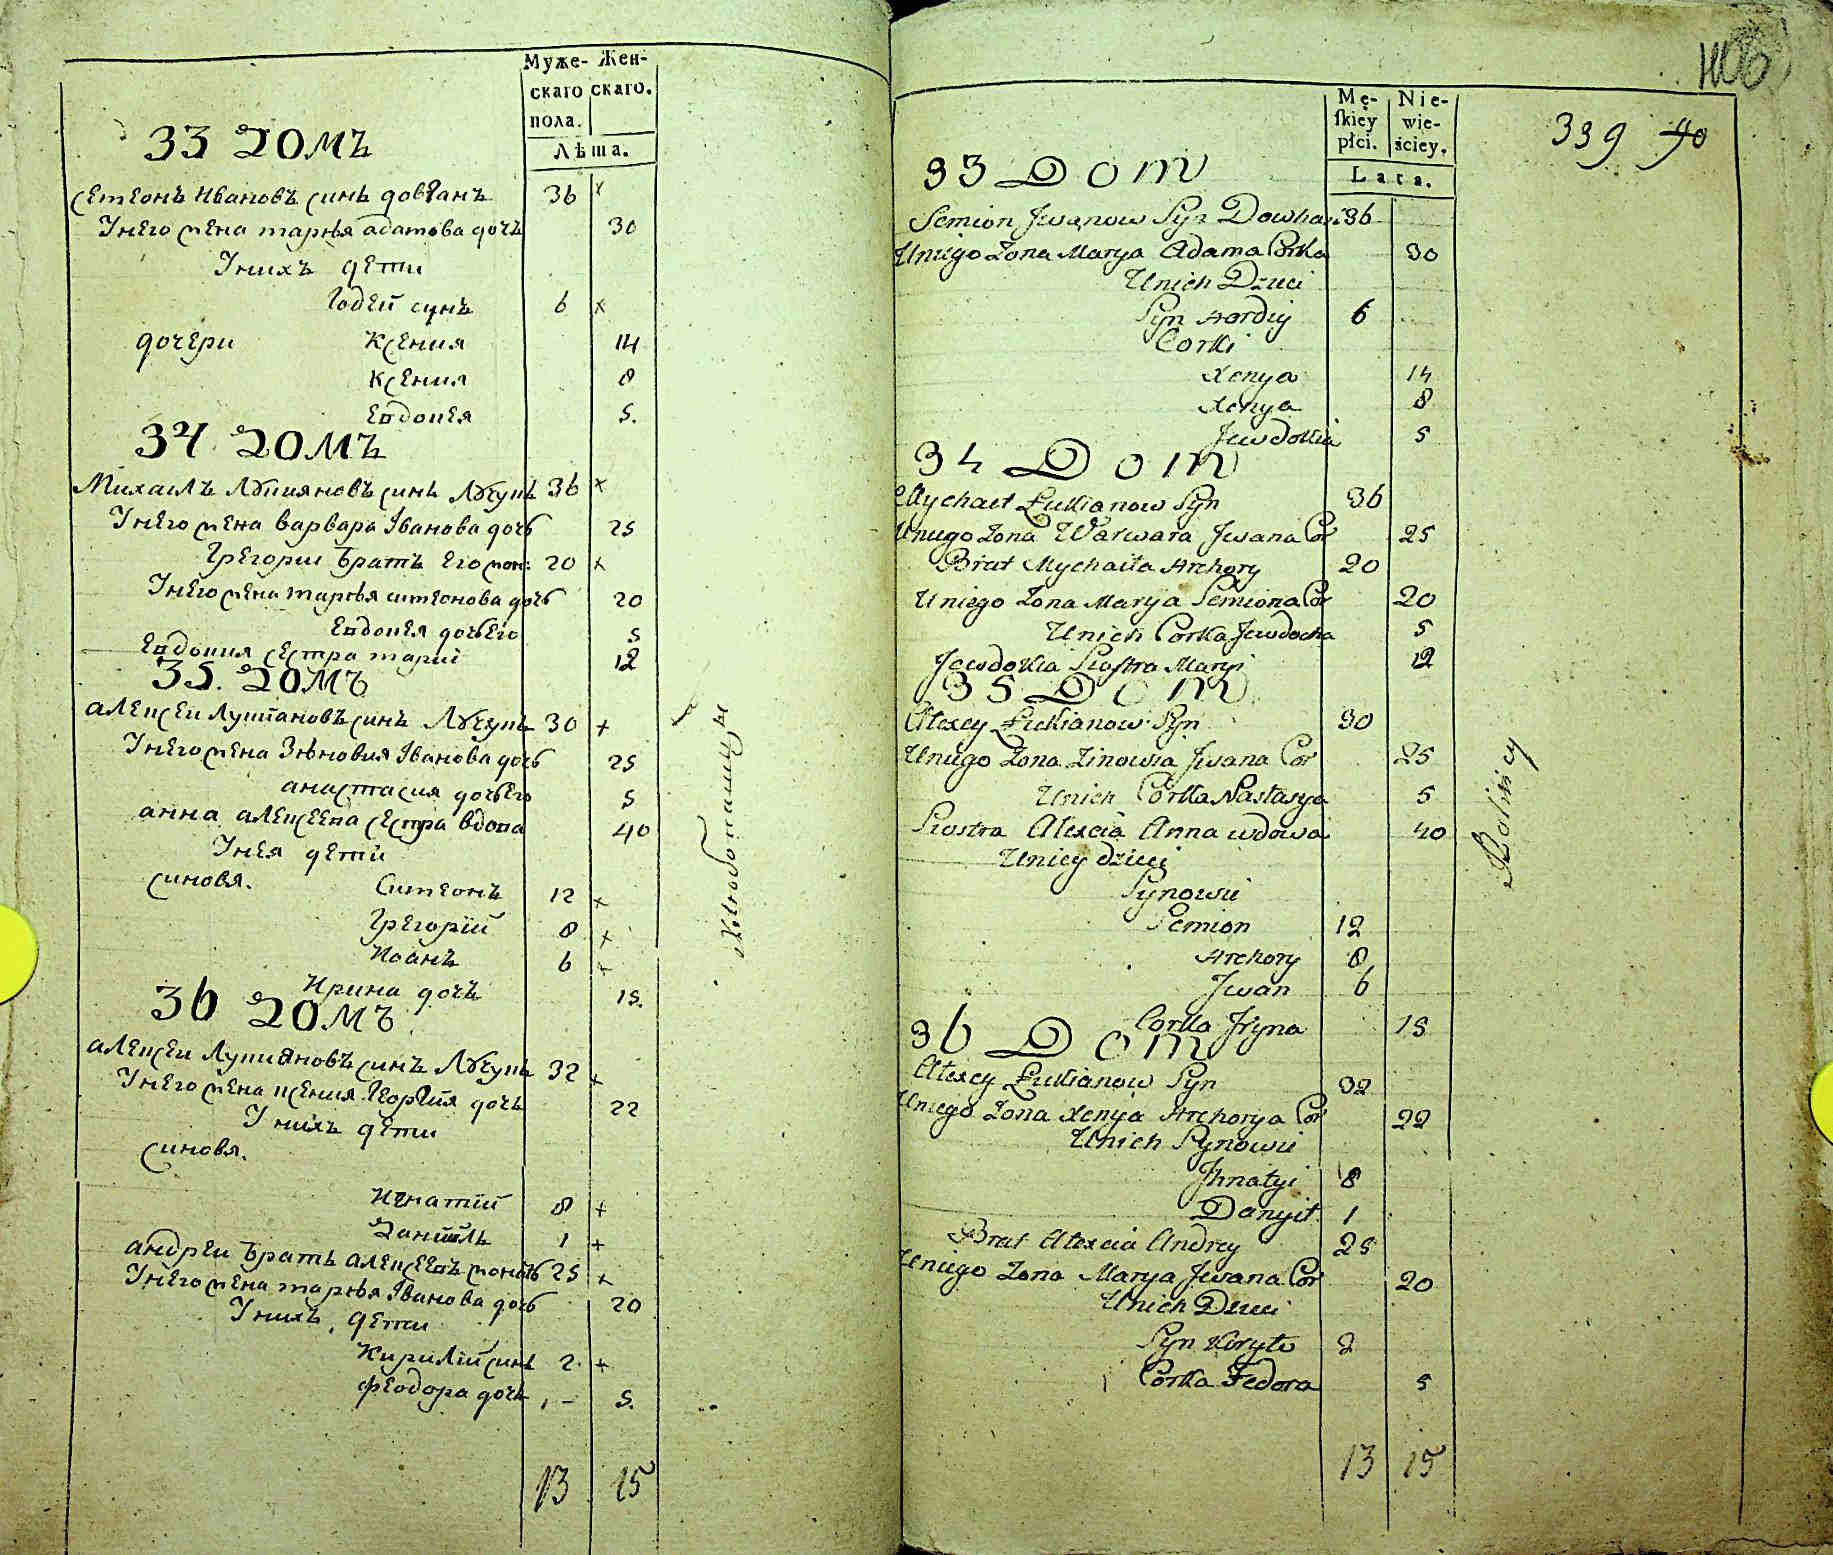 Муже- Жен-
скаго скаго.
пола.
Лѣта.
33 Домъ
Семеонъ Ивановъ синъ довганъ 36 x
Унего жена марья адамова дочъ 30
Унихъ дети
Гордей синъ 6 x
дочери Ксения 14
Ксения 8
Евдокея 5.
34 Домъ
Михаилъ Лукияновъ синъ 36 x
Унего жена варвара Іванова дочь 25
Грегории братъ его 20 x
Унего жена марья симеонова дочь 20
Евдокея дочь его 5
Евдокия сестра марии 12
35. Домъ
алексеи Лукіановъ синъ 30 +
Унего жена Зѣновия Іванова дочь 25
анастасия дочь его 5
анна алексеева сестра вдова 40
Унея дети
синовя. Симеонъ 12 x
Грегорій 8 x
Иоанъ 6 x
Ирина дочъ 15.
36 Домъ
алексеи Лукияновъ синъ 32 +
Унего жена ксения Георгия дочъ 22
Унихъ дети
синовя.
Игнатій 8 +
Даніилъ 1 +
андреи братъ алексеевъ 25 x
Унего жена марья Іванова дочь 20
Унихъ дети
Кирилій синъ 2. +
феодора дочъ 5.
13 15
339 40
Mę- Nie-
skiey wie-
płci. ściey.
Lata.
33 Dom
Semion Jwanow Syn Dowhan 36
Uniego Zona Marya Adama Corka 30
Unich Dzieci
Syn Hordiy 6
Corki
Xenya 14
Xenya 8
Jewdokia 5
34 Dom
Mychaeł Łukianow Syn 36
Uniego Zona Warwara Jwana Cor 25
Brat Mychaiła Hrehory 20
Uniego Zona Marya Semiona Cor 20
Unich Corka Jewdocha 5
Jewdokia Siostra Maryi 12
35 Dom
Alexey Łukianow Syn 30
Uniego Zona Zinowia Jwana Cor 25
Unich Córka Nastasya 5
Siostra Alexeia Anna wdowa 40
Uniey dzieci
Synowie
Semion 12
Hrehory 8
Jwan 6
Corka Jryna 15
36 Dom
Alexey Łukianow Syn 32
Uniego Zona Xenya Hrehorya Cor 22
Unich Synowie
Jhnatyi 8
Danyił 1
Brat Alexeia Andrey 25
Uniego Zona Marya Jwana Cor 20
Unich Dzieci
Syn Kiryło 2
Corka Fedora 5
Rolnicy
13 15